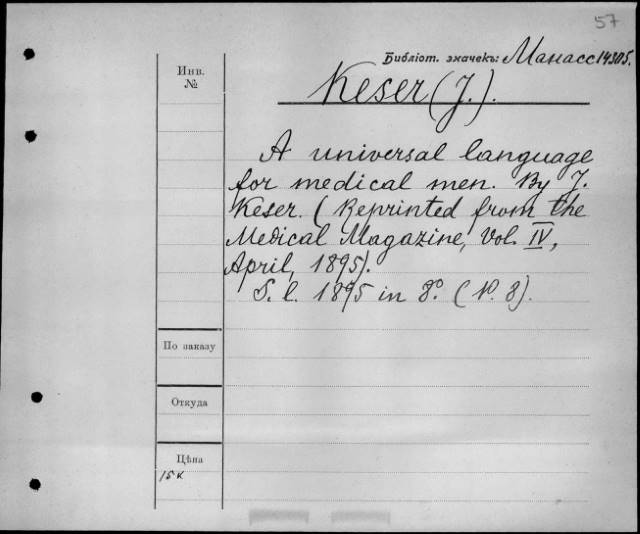 57
Библіот. значекъ: Манасс 14305.
Инв.
№
Keser (J.).
A universal language
for medical men. By J.
Keser. (Reprinted from the
Medical Magazine, Vol. IV,
April, 1895).
S. l. 1895 in 8º. (P. 8).
По заказу
Откуда
Цѣна
15 к